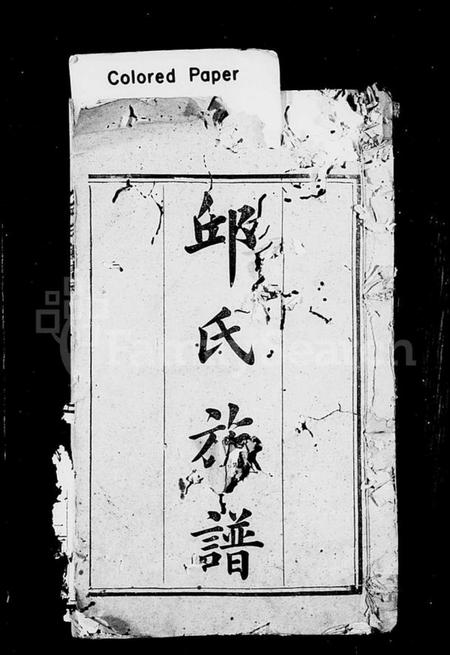 Colored Paper
邱氏族譜
FamilySearch